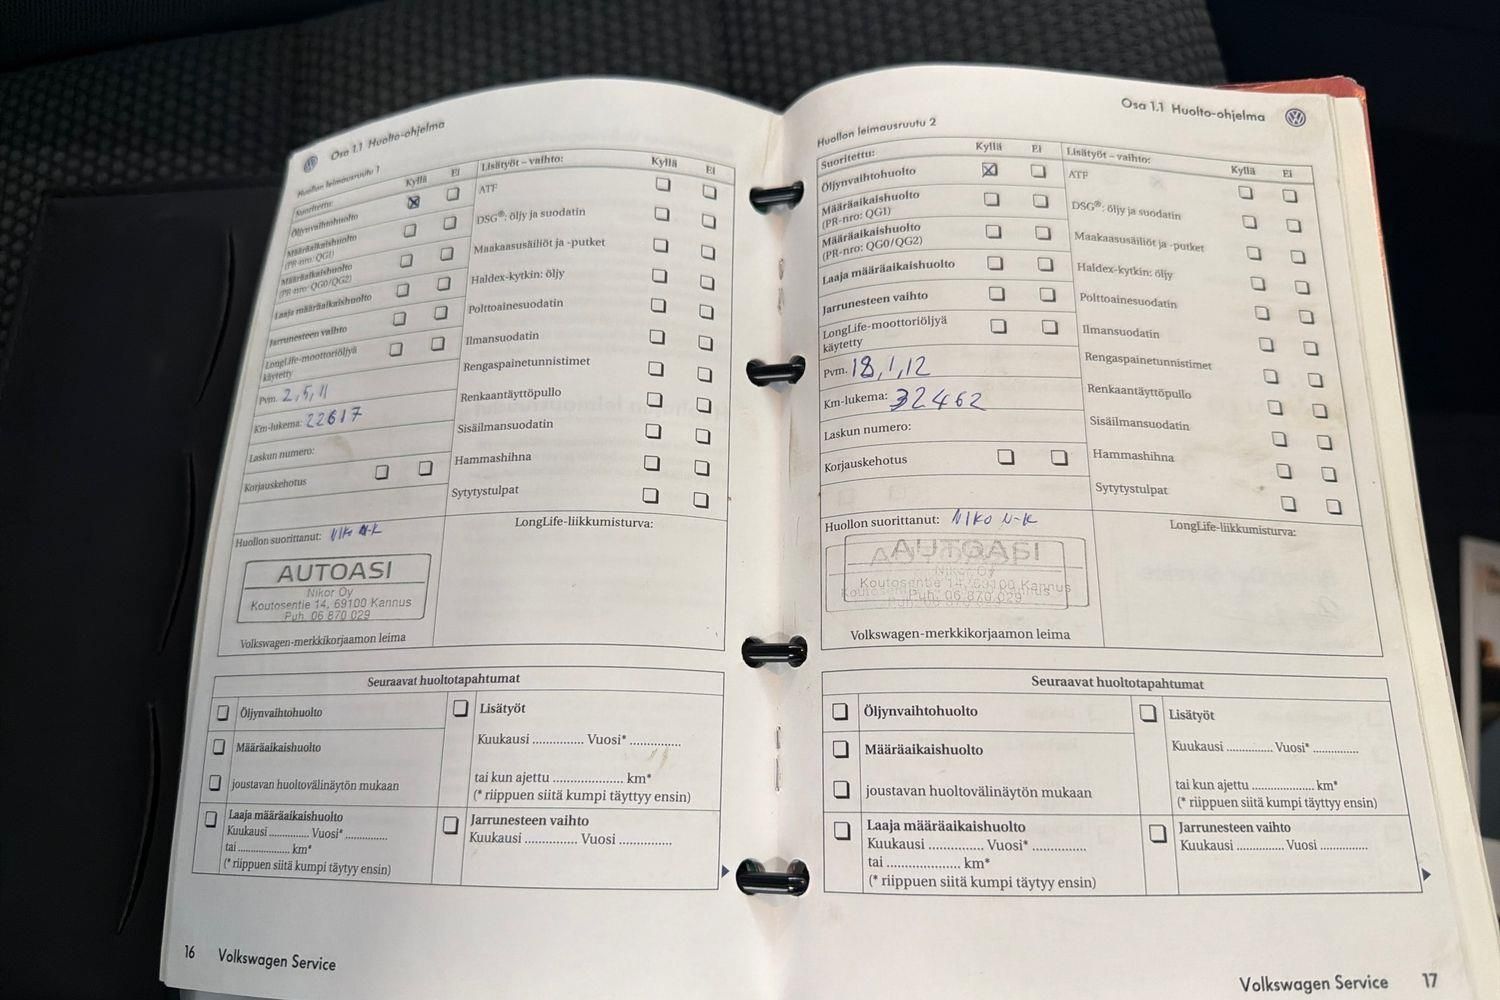 Osa 1.1 Huolto-ohjelma
Huollon leimausruutu 1
Suoritettu: Kyllä Ei
Öljynvaihtohuolto
Määräaikaishuolto
(PR-nro: QG1)
Määräaikaishuolto
(PR-nro: QG0/QG2)
Laaja määräaikaishuolto
Jarrunesteen vaihto
LongLife-moottoriöljyä
käytetty
Pvm. 2,5,11
Km-lukema: 22617
Laskun numero:
Korjauskehotus
Huollon suorittanut: Niko N-K
AUTOASI
Nikor Oy
Koutosentie 14, 69100 Kannus
Puh. 06 870 029
Volkswagen-merkkikorjaamon leima
Lisätyöt – vaihto: Kyllä Ei
ATF
DSG®: öljy ja suodatin
Maakaasusäiliöt ja -putket
Haldex-kytkin: öljy
Polttoainesuodatin
Ilmansuodatin
Rengaspainetunnistimet
Renkaantäyttöpullo
Sisäilmansuodatin
Hammashihna
Sytytystulpat
LongLife-liikkumisturva:
Seuraavat huoltotapahtumat
Öljynvaihtohuolto
Määräaikaishuolto
joustavan huoltovälinäytön mukaan
Laaja määräaikaishuolto
Kuukausi .............. Vuosi* ..............
tai .................... km*
(* riippuen siitä kumpi täytyy ensin)
Lisätyöt
Kuukausi .............. Vuosi* ..............
tai kun ajettu .................... km*
(* riippuen siitä kumpi täyttyy ensin)
Jarrunesteen vaihto
Kuukausi .............. Vuosi ..............
16 Volkswagen Service
Osa 1.1 Huolto-ohjelma
Huollon leimausruutu 2
Suoritettu: Kyllä Ei
Öljynvaihtohuolto
Määräaikaishuolto
(PR-nro: QG1)
Määräaikaishuolto
(PR-nro: QG0/QG2)
Laaja määräaikaishuolto
Jarrunesteen vaihto
LongLife-moottoriöljyä
käytetty
Pvm. 18,1,12
Km-lukema: 32462
Laskun numero:
Korjauskehotus
Huollon suorittanut: NIKO N-K
AUTOASI
Nikor Oy
Koutosentie 14, 69100 Kannus
Puh. 06 870 029
Volkswagen-merkkikorjaamon leima
Lisätyöt – vaihto: Kyllä Ei
ATF
DSG®: öljy ja suodatin
Maakaasusäiliöt ja -putket
Haldex-kytkin: öljy
Polttoainesuodatin
Ilmansuodatin
Rengaspainetunnistimet
Renkaantäyttöpullo
Sisäilmansuodatin
Hammashihna
Sytytystulpat
LongLife-liikkumisturva:
Seuraavat huoltotapahtumat
Öljynvaihtohuolto
Määräaikaishuolto
joustavan huoltovälinäytön mukaan
Laaja määräaikaishuolto
Kuukausi .............. Vuosi* ..............
tai .................... km*
(* riippuen siitä kumpi täytyy ensin)
Lisätyöt
Kuukausi .............. Vuosi* ..............
tai kun ajettu .................... km*
(* riippuen siitä kumpi täyttyy ensin)
Jarrunesteen vaihto
Kuukausi .............. Vuosi ..............
Volkswagen Service 17